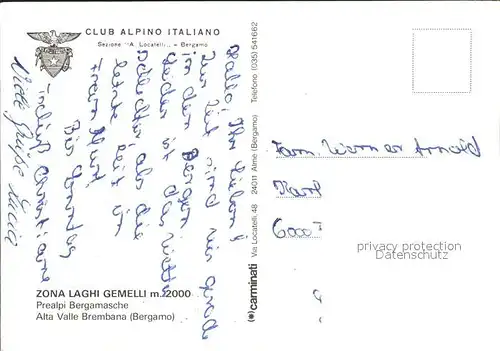 CLUB ALPINO ITALIANO
Sezione "A. Locatelli" - Bergamo
Hallo, Ihr Lieben!
Zur Zeit sind wir grad
in den Bergen.
Leider ist das Wetter
schlechter, als die
letzte Zeit in
Bis Sonntag
Christiane
Viele Grüße
ZONA LAGHI GEMELLI m. 2000
Prealpi Bergamasche
Alta Valle Brembana (Bergamo)
(•) carminati
Via Locatelli, 48 24011 Almè (Bergamo) Telefono (035) 541662
Fam. Werner Arnold
privacy protection
Datenschutz